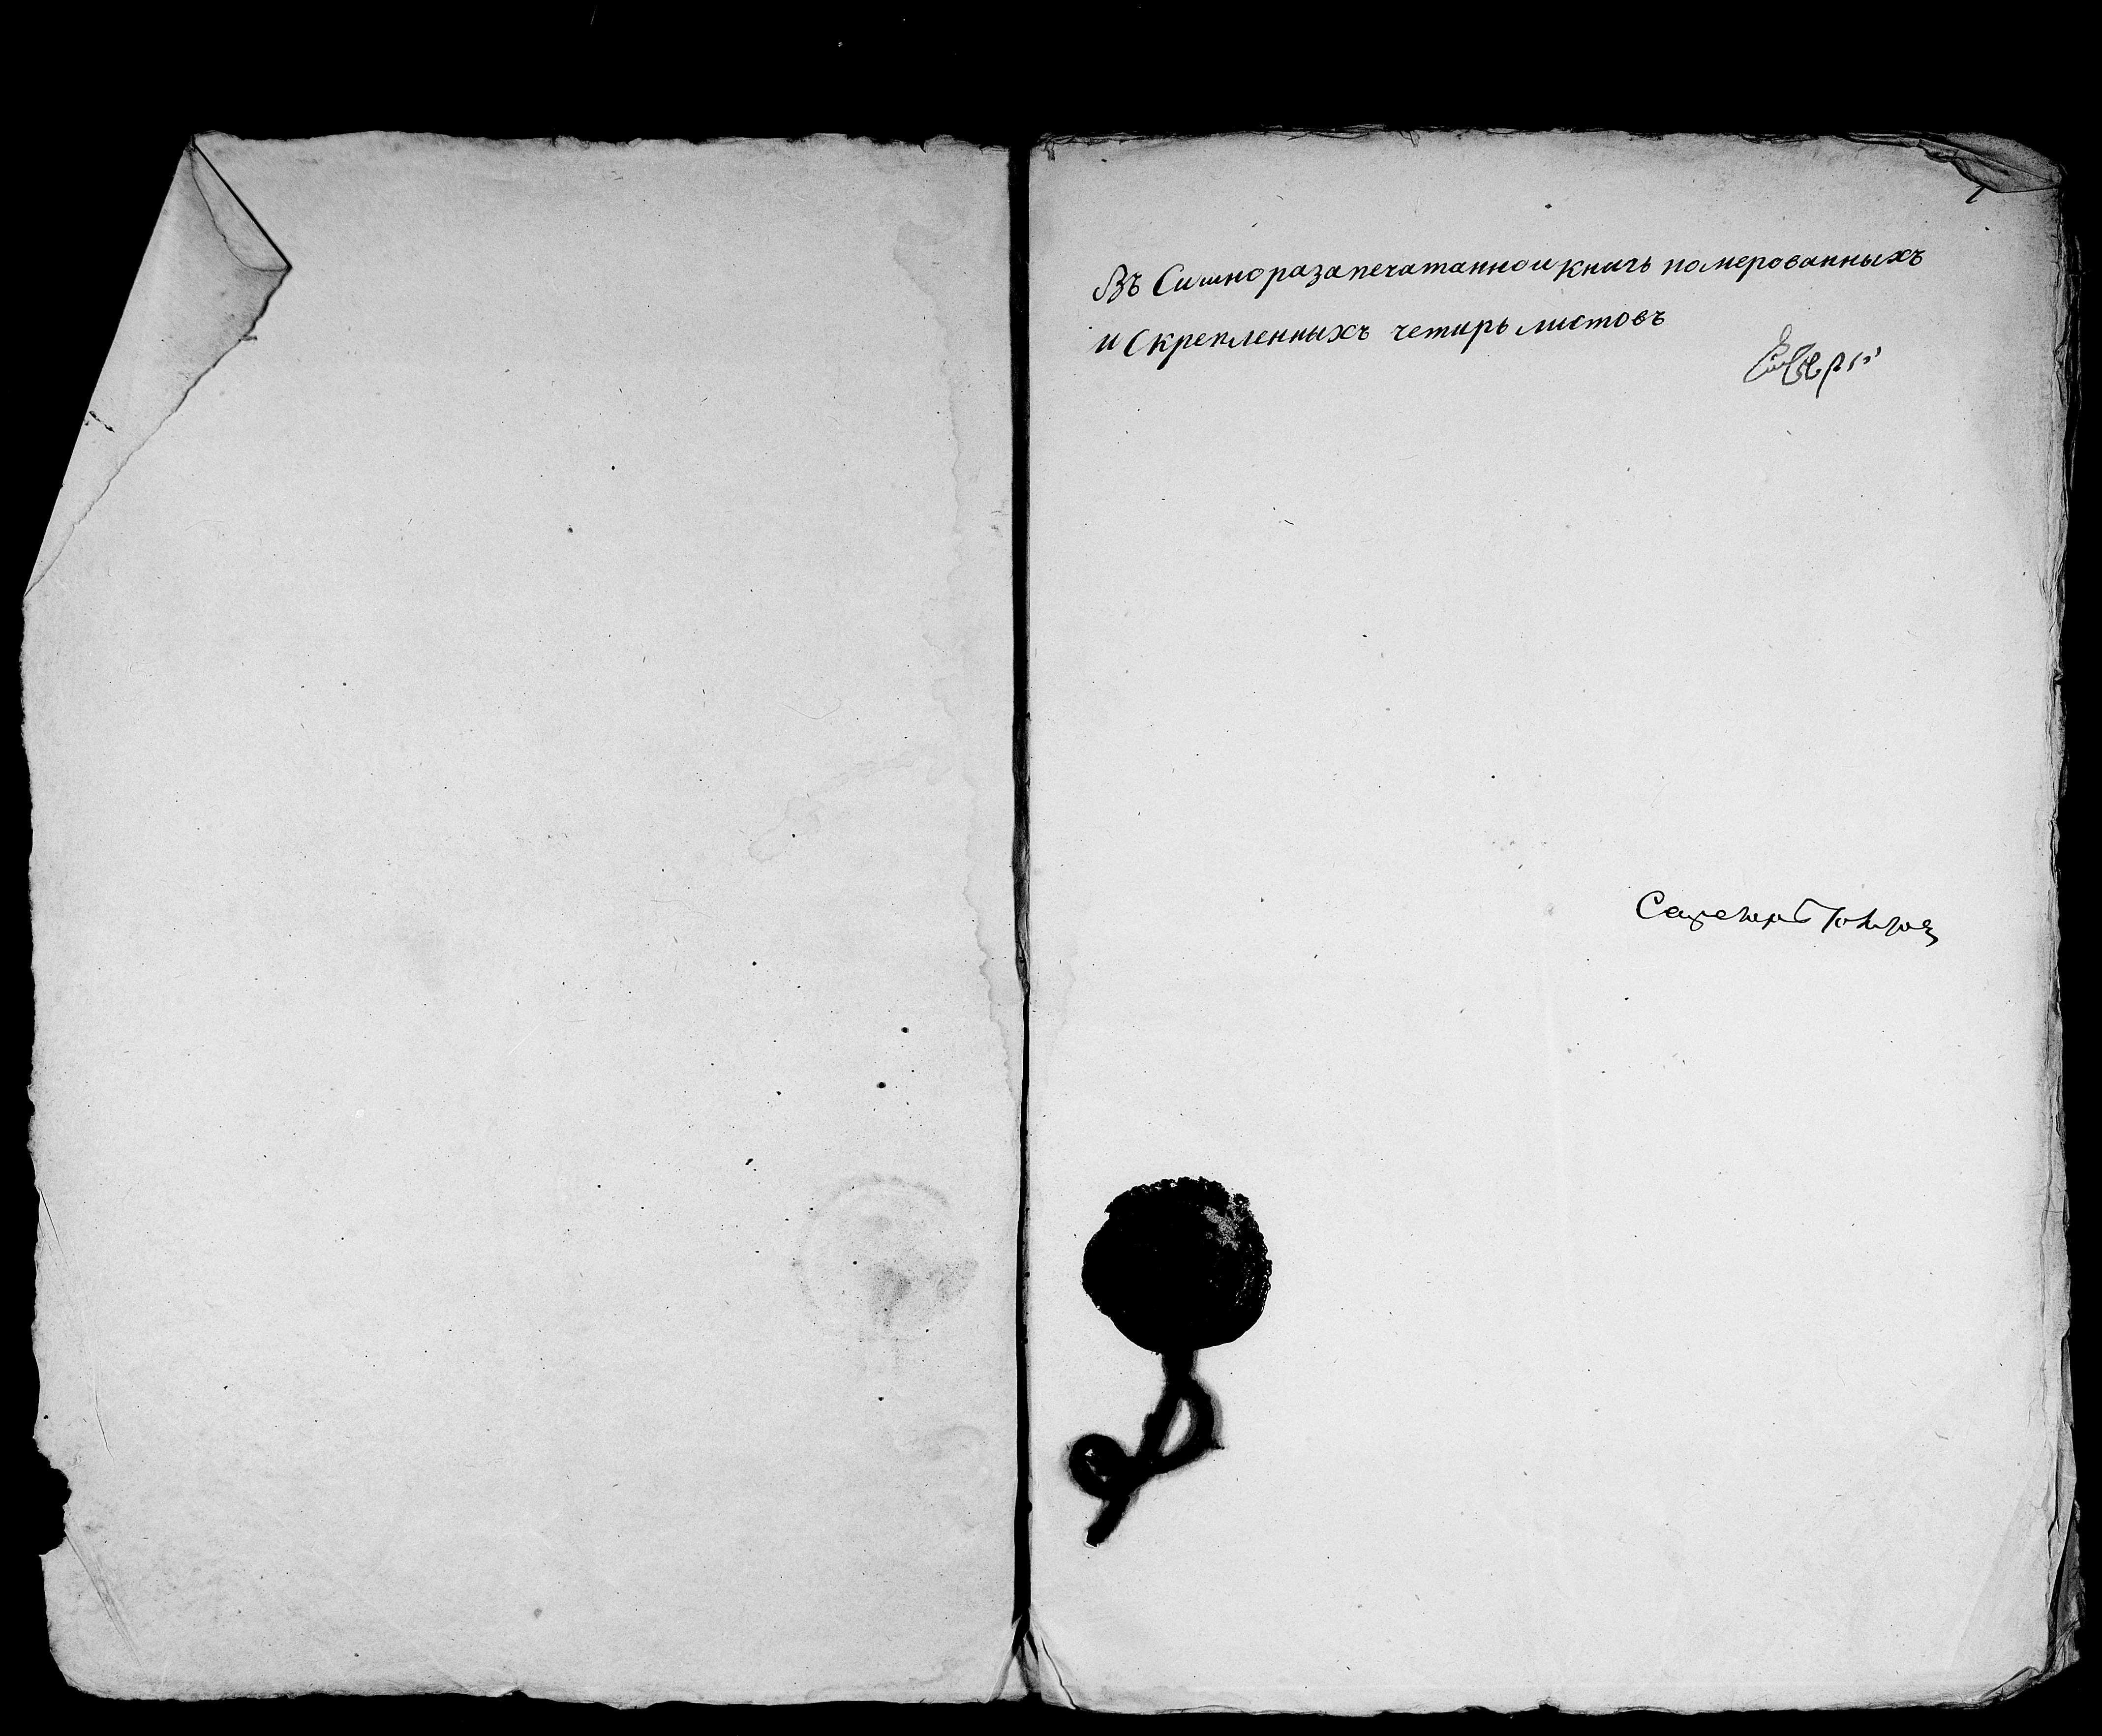 Въ Сишноразапечатанной книгѣ номерованныхъ
и Скрепленныхъ четирь листовъ
Секретарь